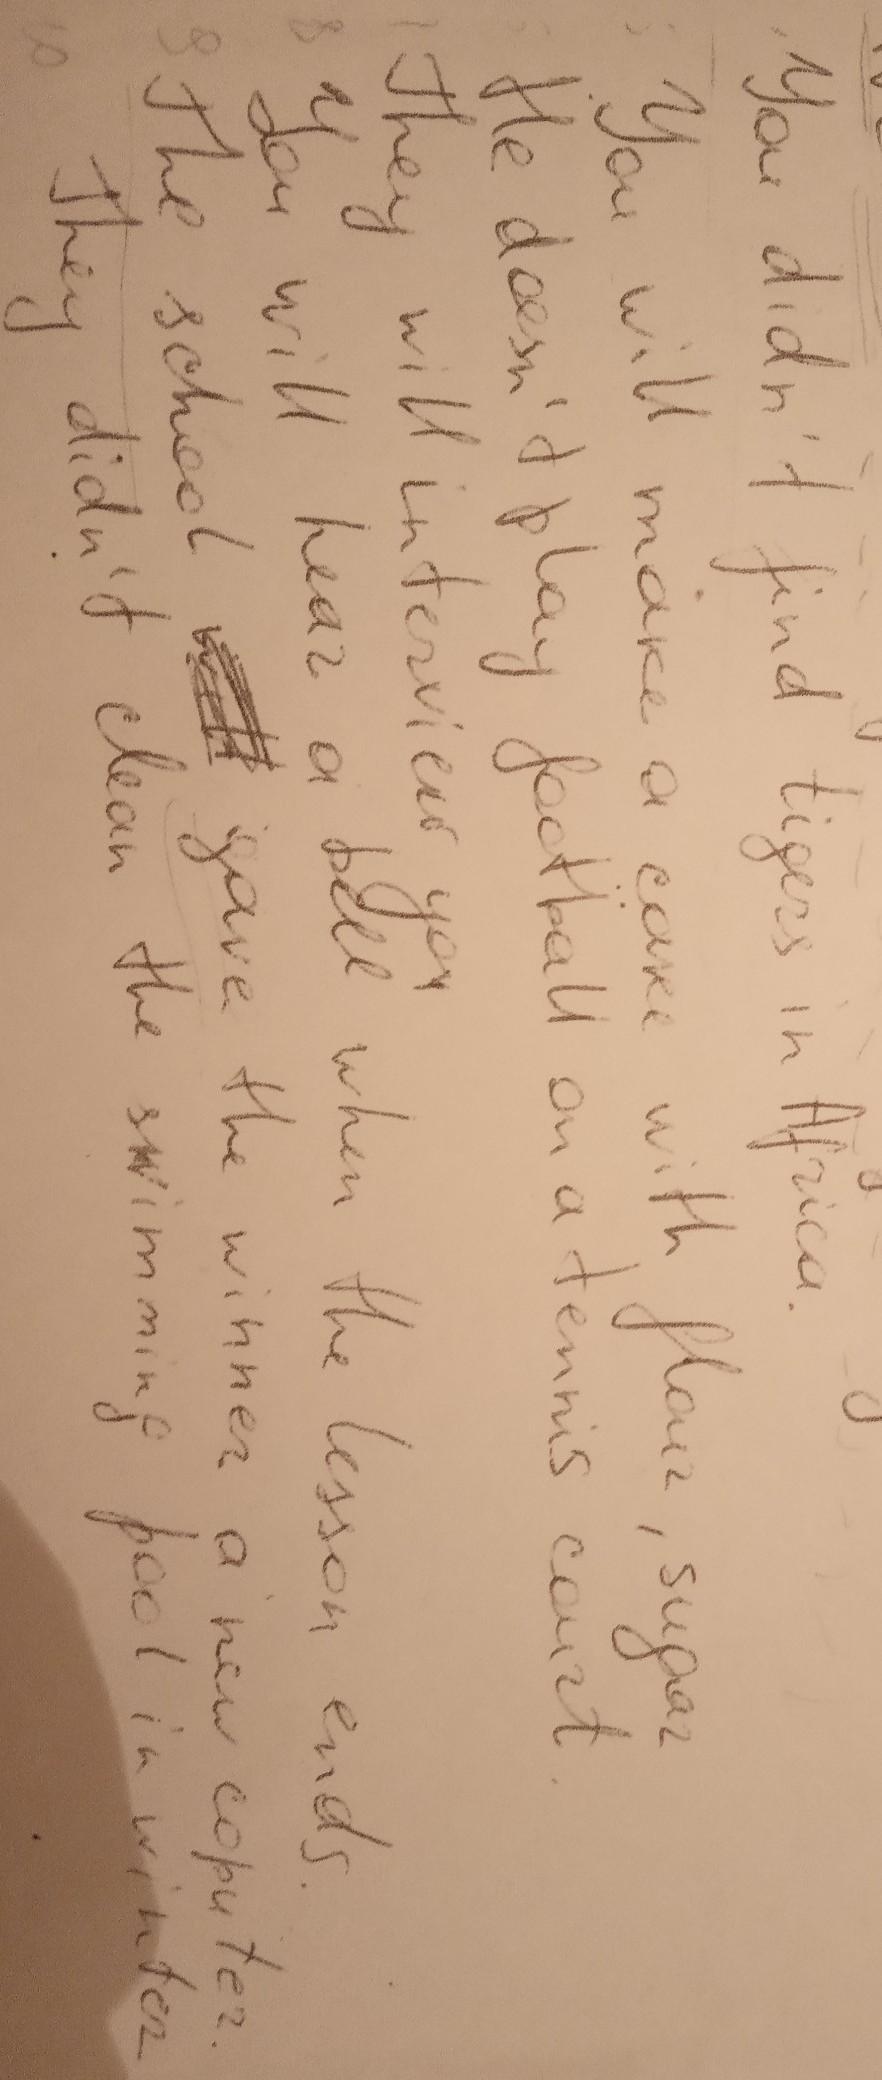 You didn't find tigers in Africa.
You will make a cake with flour, sugar
He doesn't play football on a tennis court.
They will interview you
8 You will hear a bell when the lesson ends.
9 The school gave the winner a new coputer.
10 They didn't clean the swimming pool in winter